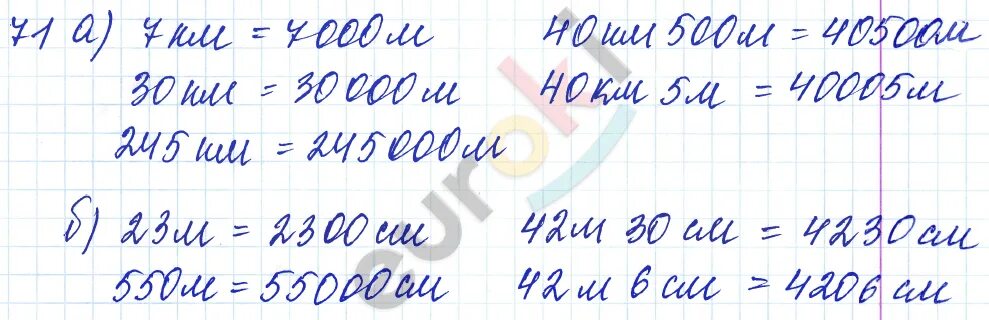 71 а) 7 км = 7000 м 40 км 500 м = 40500 м
30 км = 30 000 м 40 км 5 м = 40005 м
245 км = 245 000 м
б) 23 м = 2300 см 42 м 30 см = 4230 см
550 м = 55000 см 42 м 6 см = 4206 см
euroki